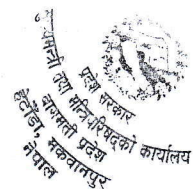 प्रदेश सरकार
मुख्यमन्त्री तथा मन्त्रिपरिषद्को कार्यालय
बागमती प्रदेश
हेटौंडा, मकवानपुर
नेपाल